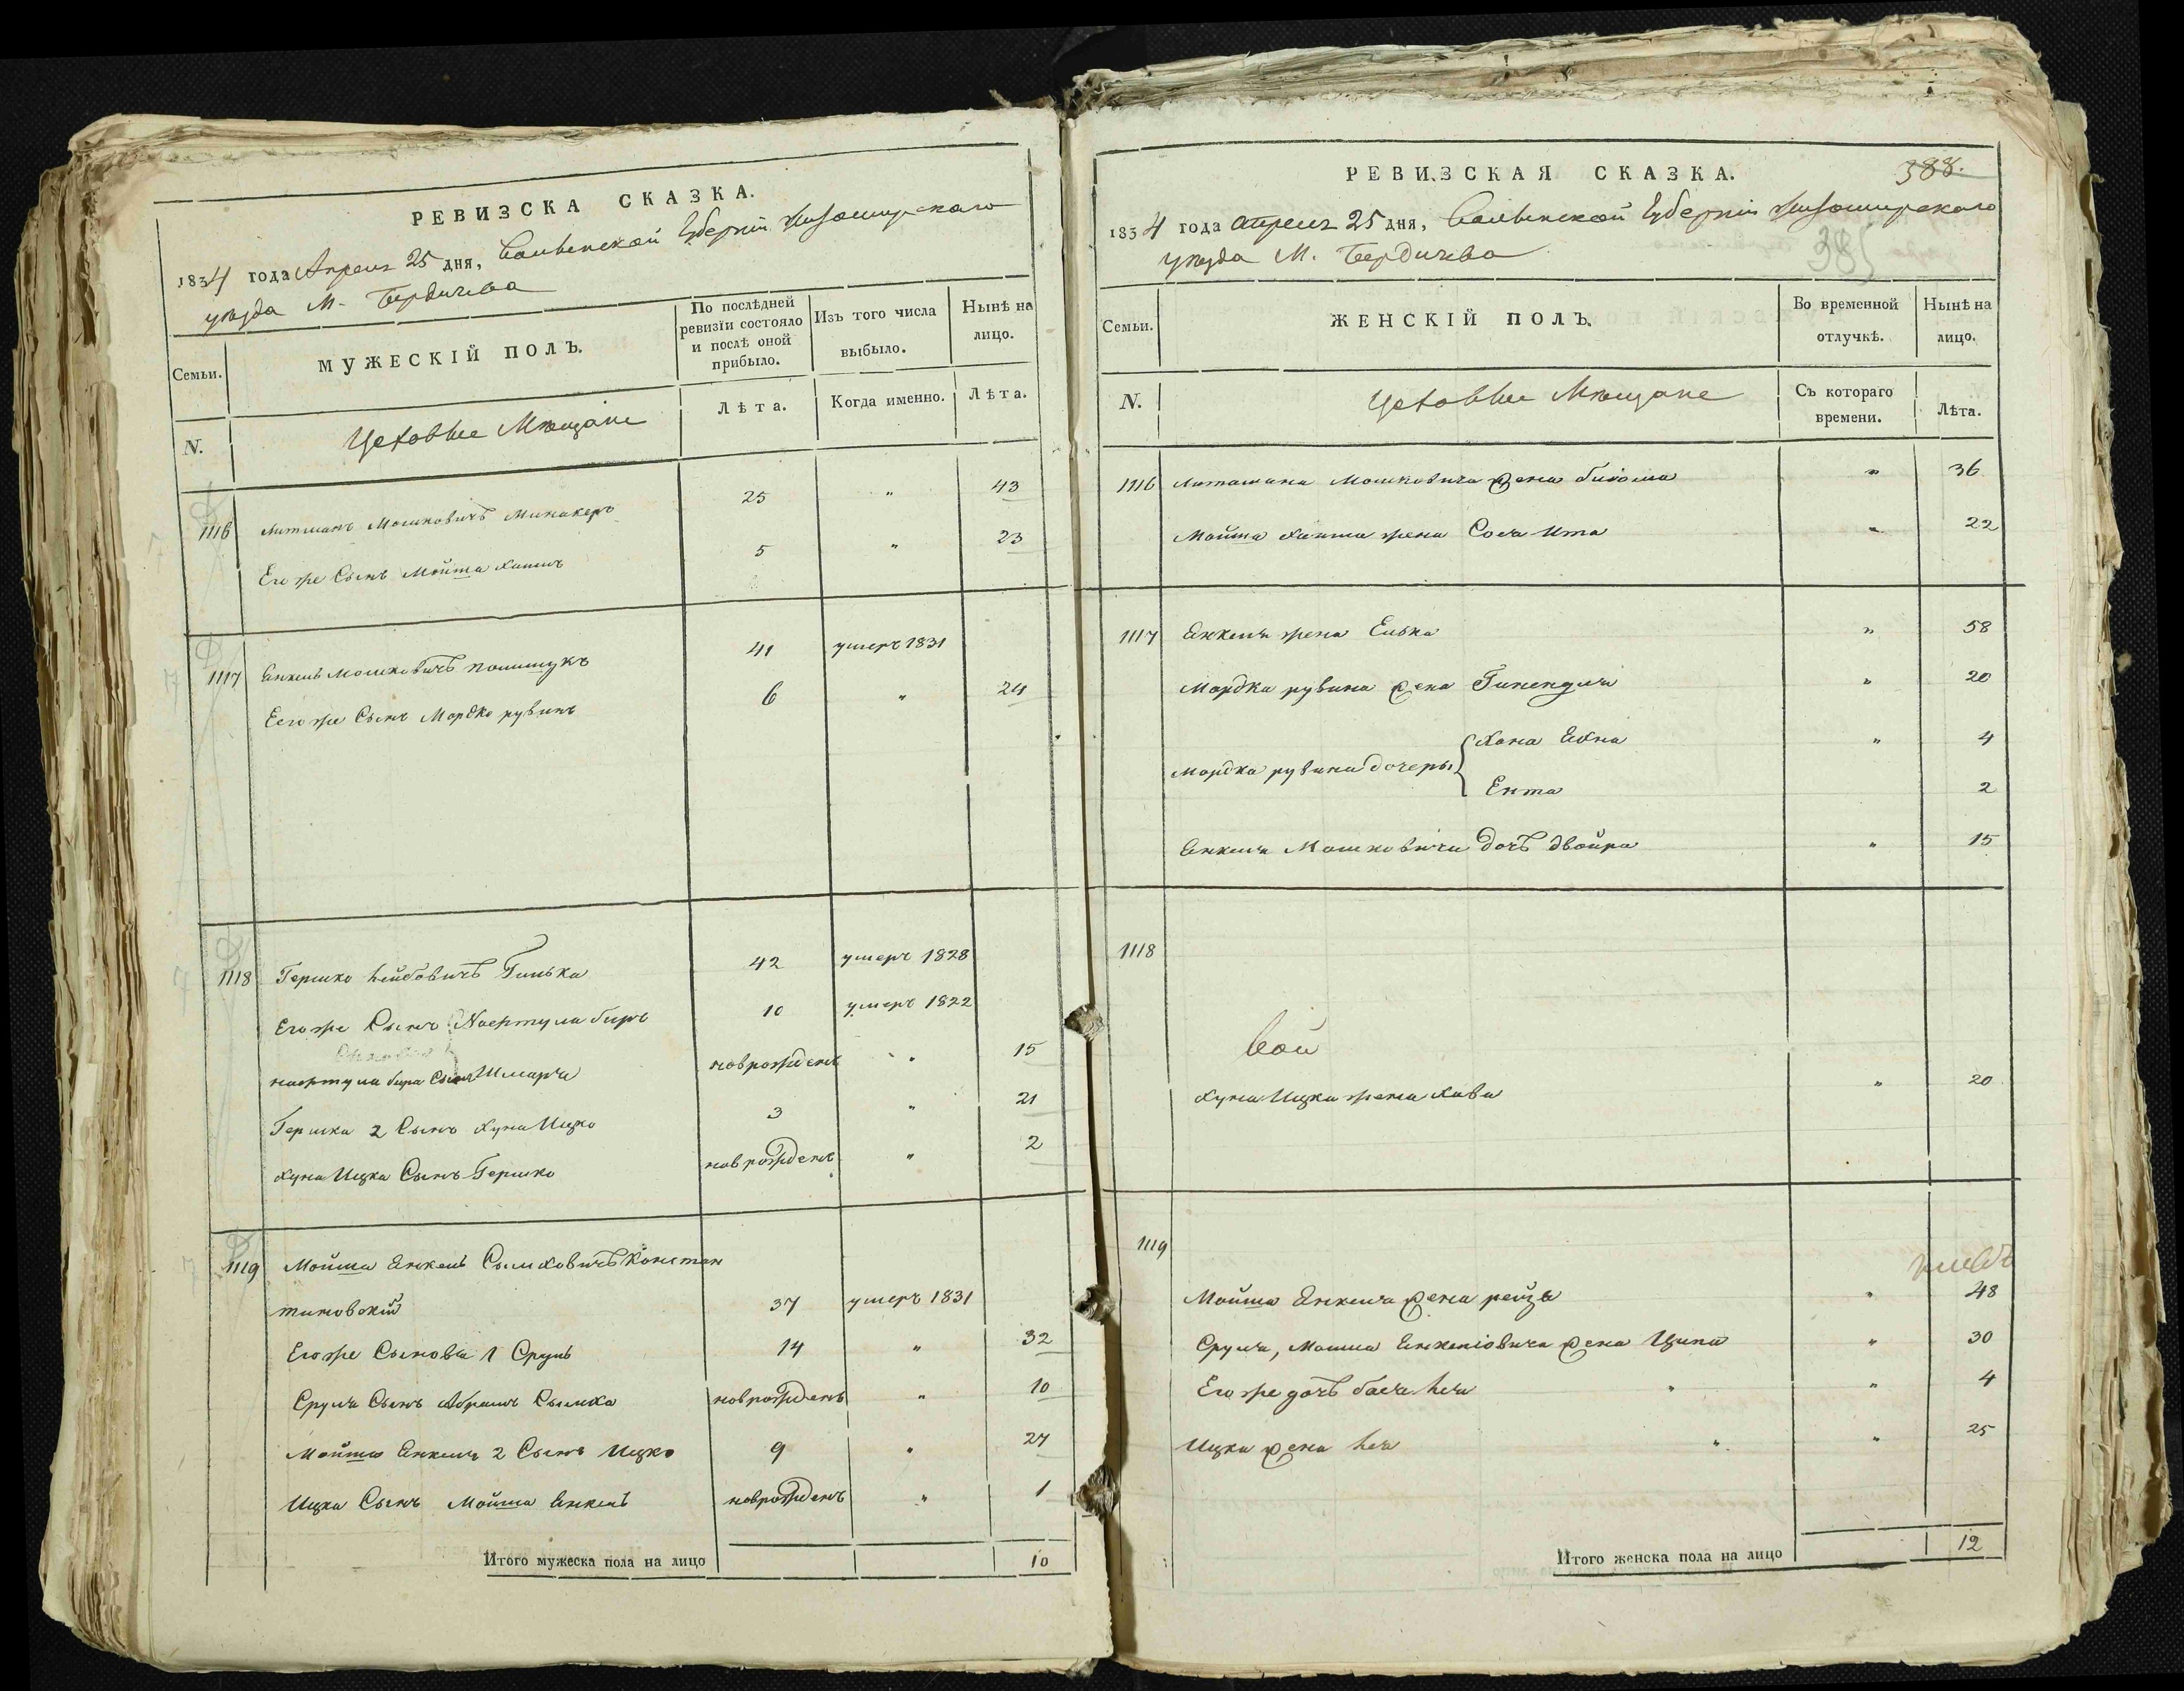 РЕВИЗСКА СКАЗКА.
1834 года Апреля 25 дня, Волынской Губернии Житомирского
уезда М. Бердичева
Семьи.
МУЖЕСКІЙ ПОЛЪ.
По послѣдней ревизіи состояло и послѣ оной прибыло.
Изъ того числа выбыло.
Нынѣ на лицо.
N.
Цеховые Мещане
Лѣта.
Когда именно.
Лѣта.
1116 Литманъ Мошковичъ 25 " 43
Его же Сынъ Мойша Хаимъ 5 " 23
1117 Янкель Мошковичъ полищукъ 41 умеръ 1831
Его же Сынъ Мордко рувинъ 6 " 24
1118 Гершко лейбовичъ 42 умеръ 1828
Его же Сынъ 10 умеръ 1822
Сынъ Шмаря новрожденъ " 15
Гершка 2 Сынъ Хуна Ицко 3 " 21
Хуна Ицка Сынъ Гершко новрожденъ " 2
1119 Мойша Янкель Сымховичъ Констан
тиновскій 37 умеръ 1831
Его же Сыновья 1 Сруль 14 " 32
Сруля Сынъ Абрамъ Сымха новрожденъ " 10
Мойша Янкеля 2 Сынъ Ицко 9 " 27
Ицка Сынъ Мойша Янкель новрожденъ " 1
Итого мужеска пола на лицо 10
РЕВИЗСКАЯ СКАЗКА. 388.
385
1834 года Апреля 25 дня, Волынской Губернии Житомирского
уезда М. Бердичева
Семьи.
ЖЕНСКІЙ ПОЛЪ.
Во временной отлучкѣ.
Нынѣ на лицо.
N.
Цеховые Мещане
Съ котораго времени.
Лѣта.
1116 Литмана Мошковича жена " 36
Мойша Хаима жена Сося Ита " 22
1117 Янкеля жена Елька " 58
Мордка рувина жена " 20
Мордка рувина дочеры Хана " 4
Ента " 2
Янкеля Мошковича дочъ двойра " 15
1118
Хуна Ицка жена Хава " 20
1119
Мойша Янкеля жена рейзя " 48
Сруля, Мошка Янкеліовича жена Ципа " 30
Его же дочъ бася лея " " 4
Ицка жена лея " " 25
Итого женска пола на лицо 12